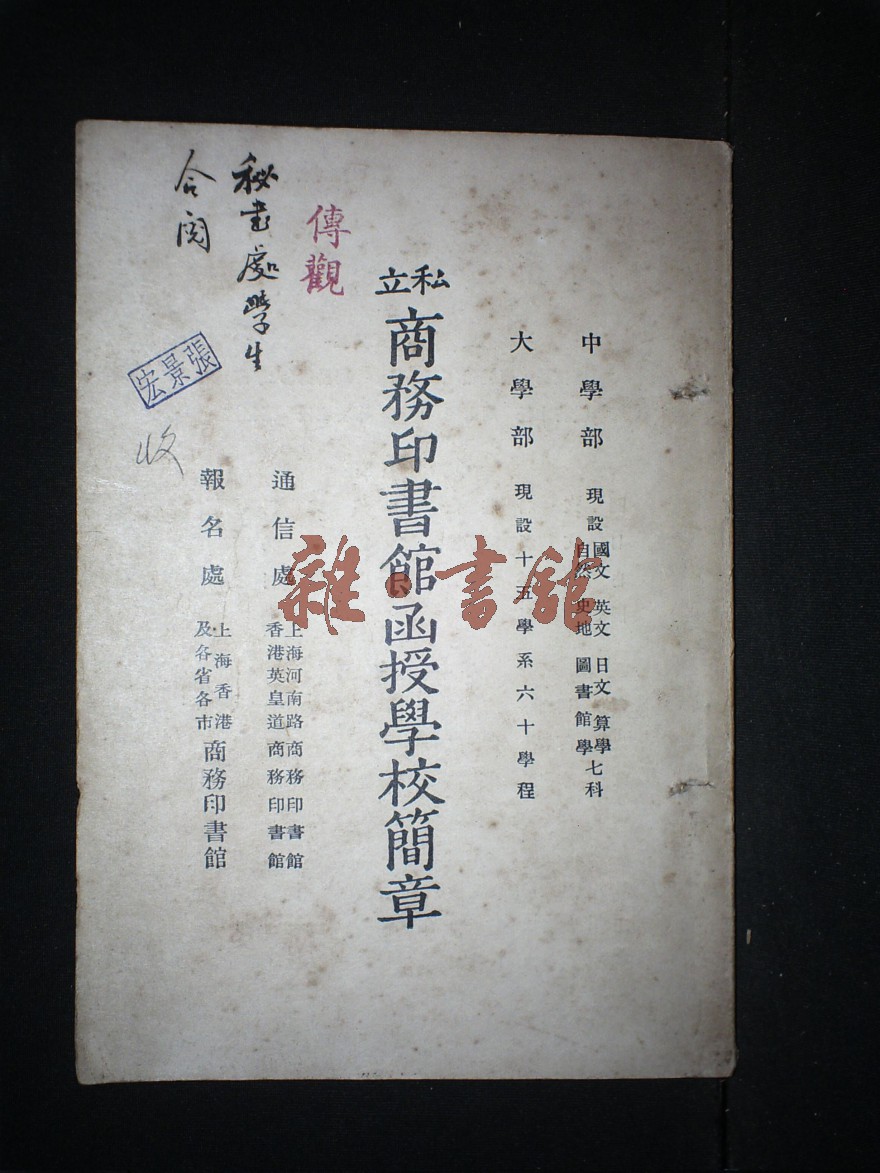 中學部 現設 國文 英文 日文 算學 自然 史地 圖書館學 七科
大學部 現設十五學系六十學程
私立
商務印書館函授學校簡章
通信處 上海河南路商務印書館 香港英皇道商務印書館
報名處 上海香港及各省各市 商務印書館
傳觀
秘書處學生
合閱
張景宏
收
雜·書館